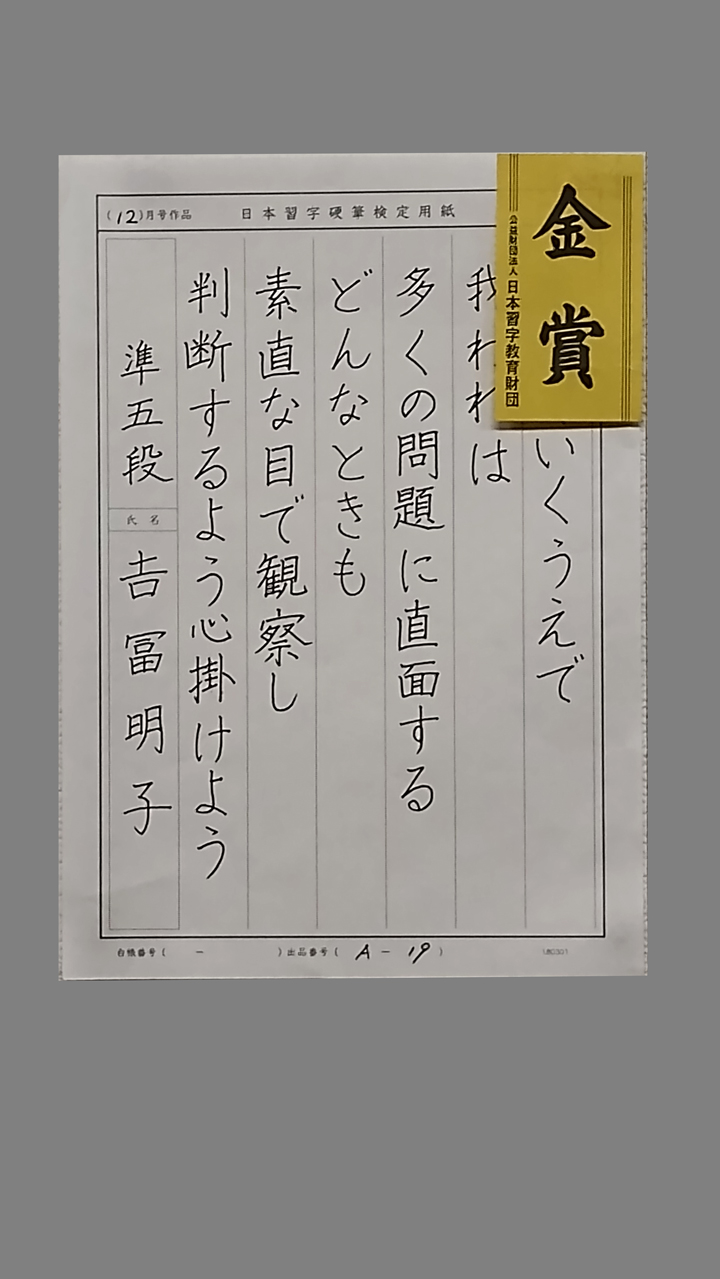 (12)月号作品
日本習字硬筆検定用紙
金賞
公益財団法人日本習字教育財団
いくうえで
我われは
多くの問題に直面する
どんなときも
素直な目で観察し
判断するよう心掛けよう
準五段
氏名
吉冨明子
台帳番号( ー )出品番号( A - 19 )
(8030)